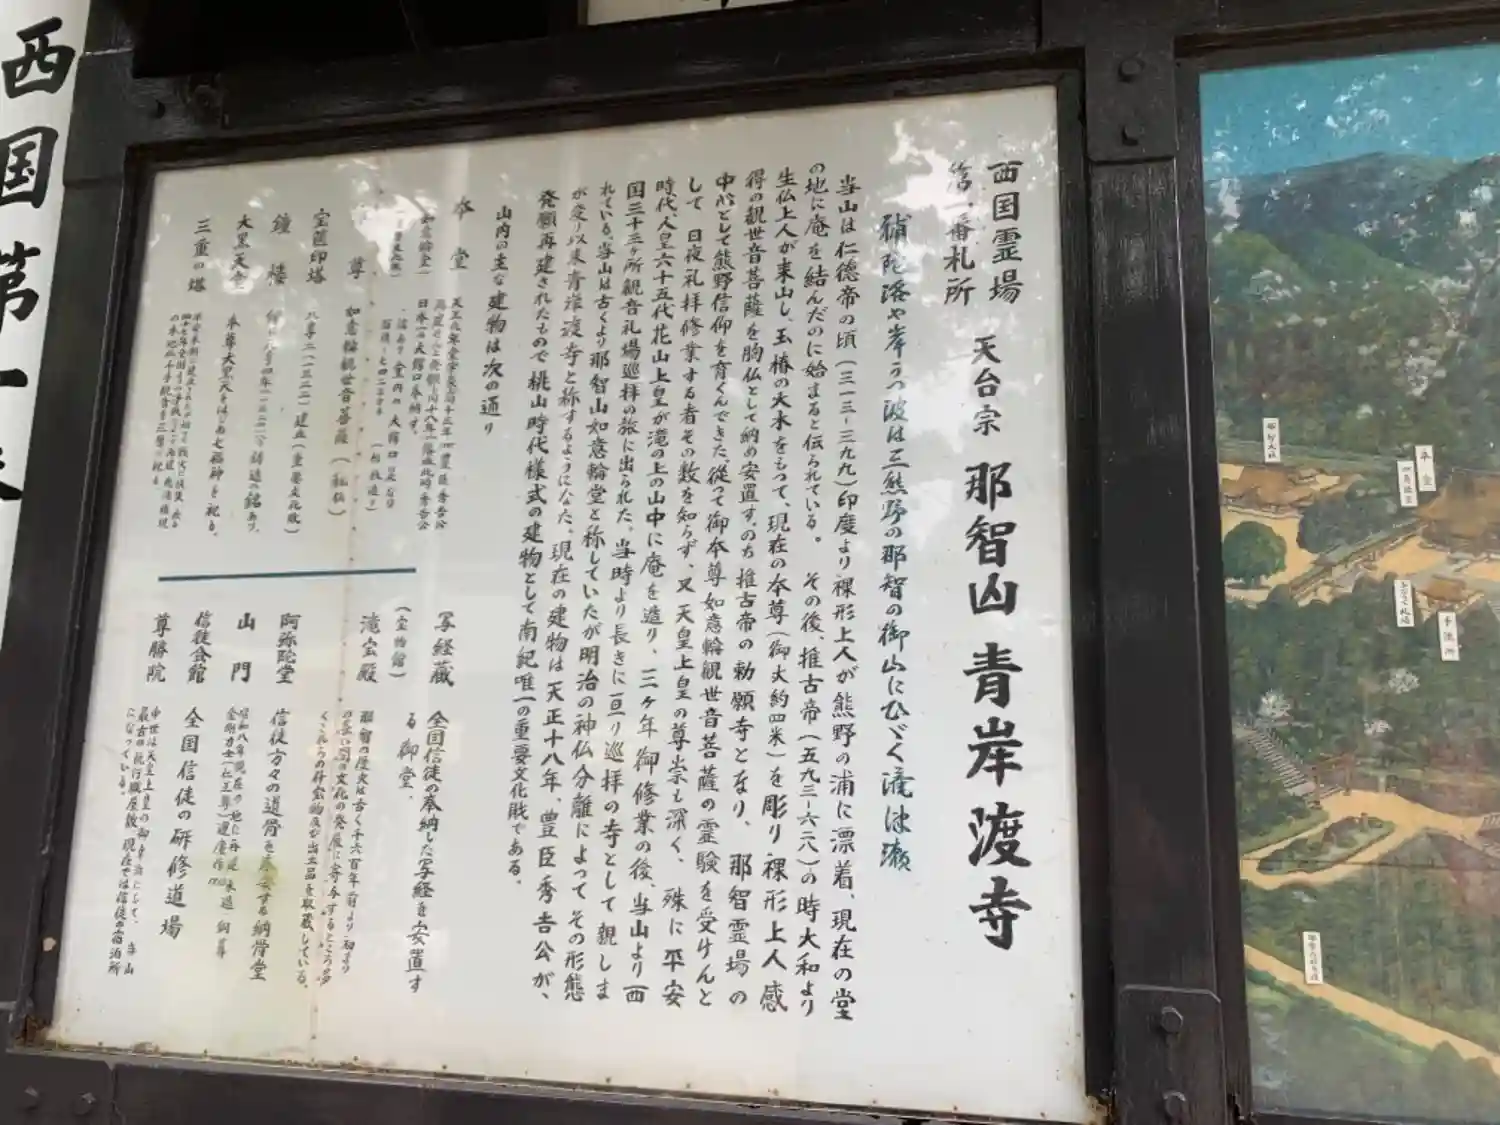 西国霊場
第一番札所
天台宗 那智山 青岸渡寺
補陀洛や岸うつ波は三熊野の那智の御山にひゞく滝津瀬
当山は仁徳帝の頃(三一三ー三九九)印度より裸形上人が熊野の浦に漂着、現在の堂
の地に庵を結んだのに始まると伝られている。 その後、推古帝(五九三ー六二八)の時大和より
生仏上人が来山し、玉椿の大木をもって、現在の本尊(御丈約四米)を彫り裸形上人感
得の観世音菩薩を胸仏として納め安置す。のち推古帝の勅願寺となり、那智霊場の
中心として熊野信仰を育くんできた。従って御本尊如意輪観世音菩薩の霊験を受けんと
して 日夜礼拝修業する者その数を知らず、又天皇上皇の尊崇も深く、殊に平安
時代、人皇六十五代花山上皇が滝の上の山中に庵を造り、三ヶ年御修業の後、当山より西
国三十三ヶ所観音礼場巡拝の旅に出られた。当時より長きに亘り巡拝の寺として親しま
れている。当山は古くより那智山如意輪堂と称していたが明治の神仏分離によってその形態
が変り以来青岸渡寺と称するようになった。現在の建物は天正十八年、豊臣秀吉公が、
発願再建されたもので桃山時代様式の建物として南紀唯一の重要文化財である。
山内の主な建物は次の通り
本堂
(如意輪堂)
天正九年堂宇炎上同十五年
日本一の大鰐口奉納す。
尊 如意輪観世音菩薩(秘仏)
宝篋印塔 (一三二二)建立(重要文化財)
鐘楼
大黒天堂 本尊大黒天をはじめ七福神を祀る。
三重の塔
写経蔵 全国信徒の奉納した写経を安置す
る御堂。
滝宝殿
(宝物館)
那智の歴史は古く千六百年前より初まり
くこれらの祥宝物及び出土品を取蔵している。
阿弥陀堂 信徒方々の道骨を 安する納骨堂
山門 昭和八年現在の地に再建
信徒会館 全国信徒の研修道場
尊勝院
最古の
現在では信徒の宿泊所
になっている。
西国第一
那智大社
本堂
手洗所